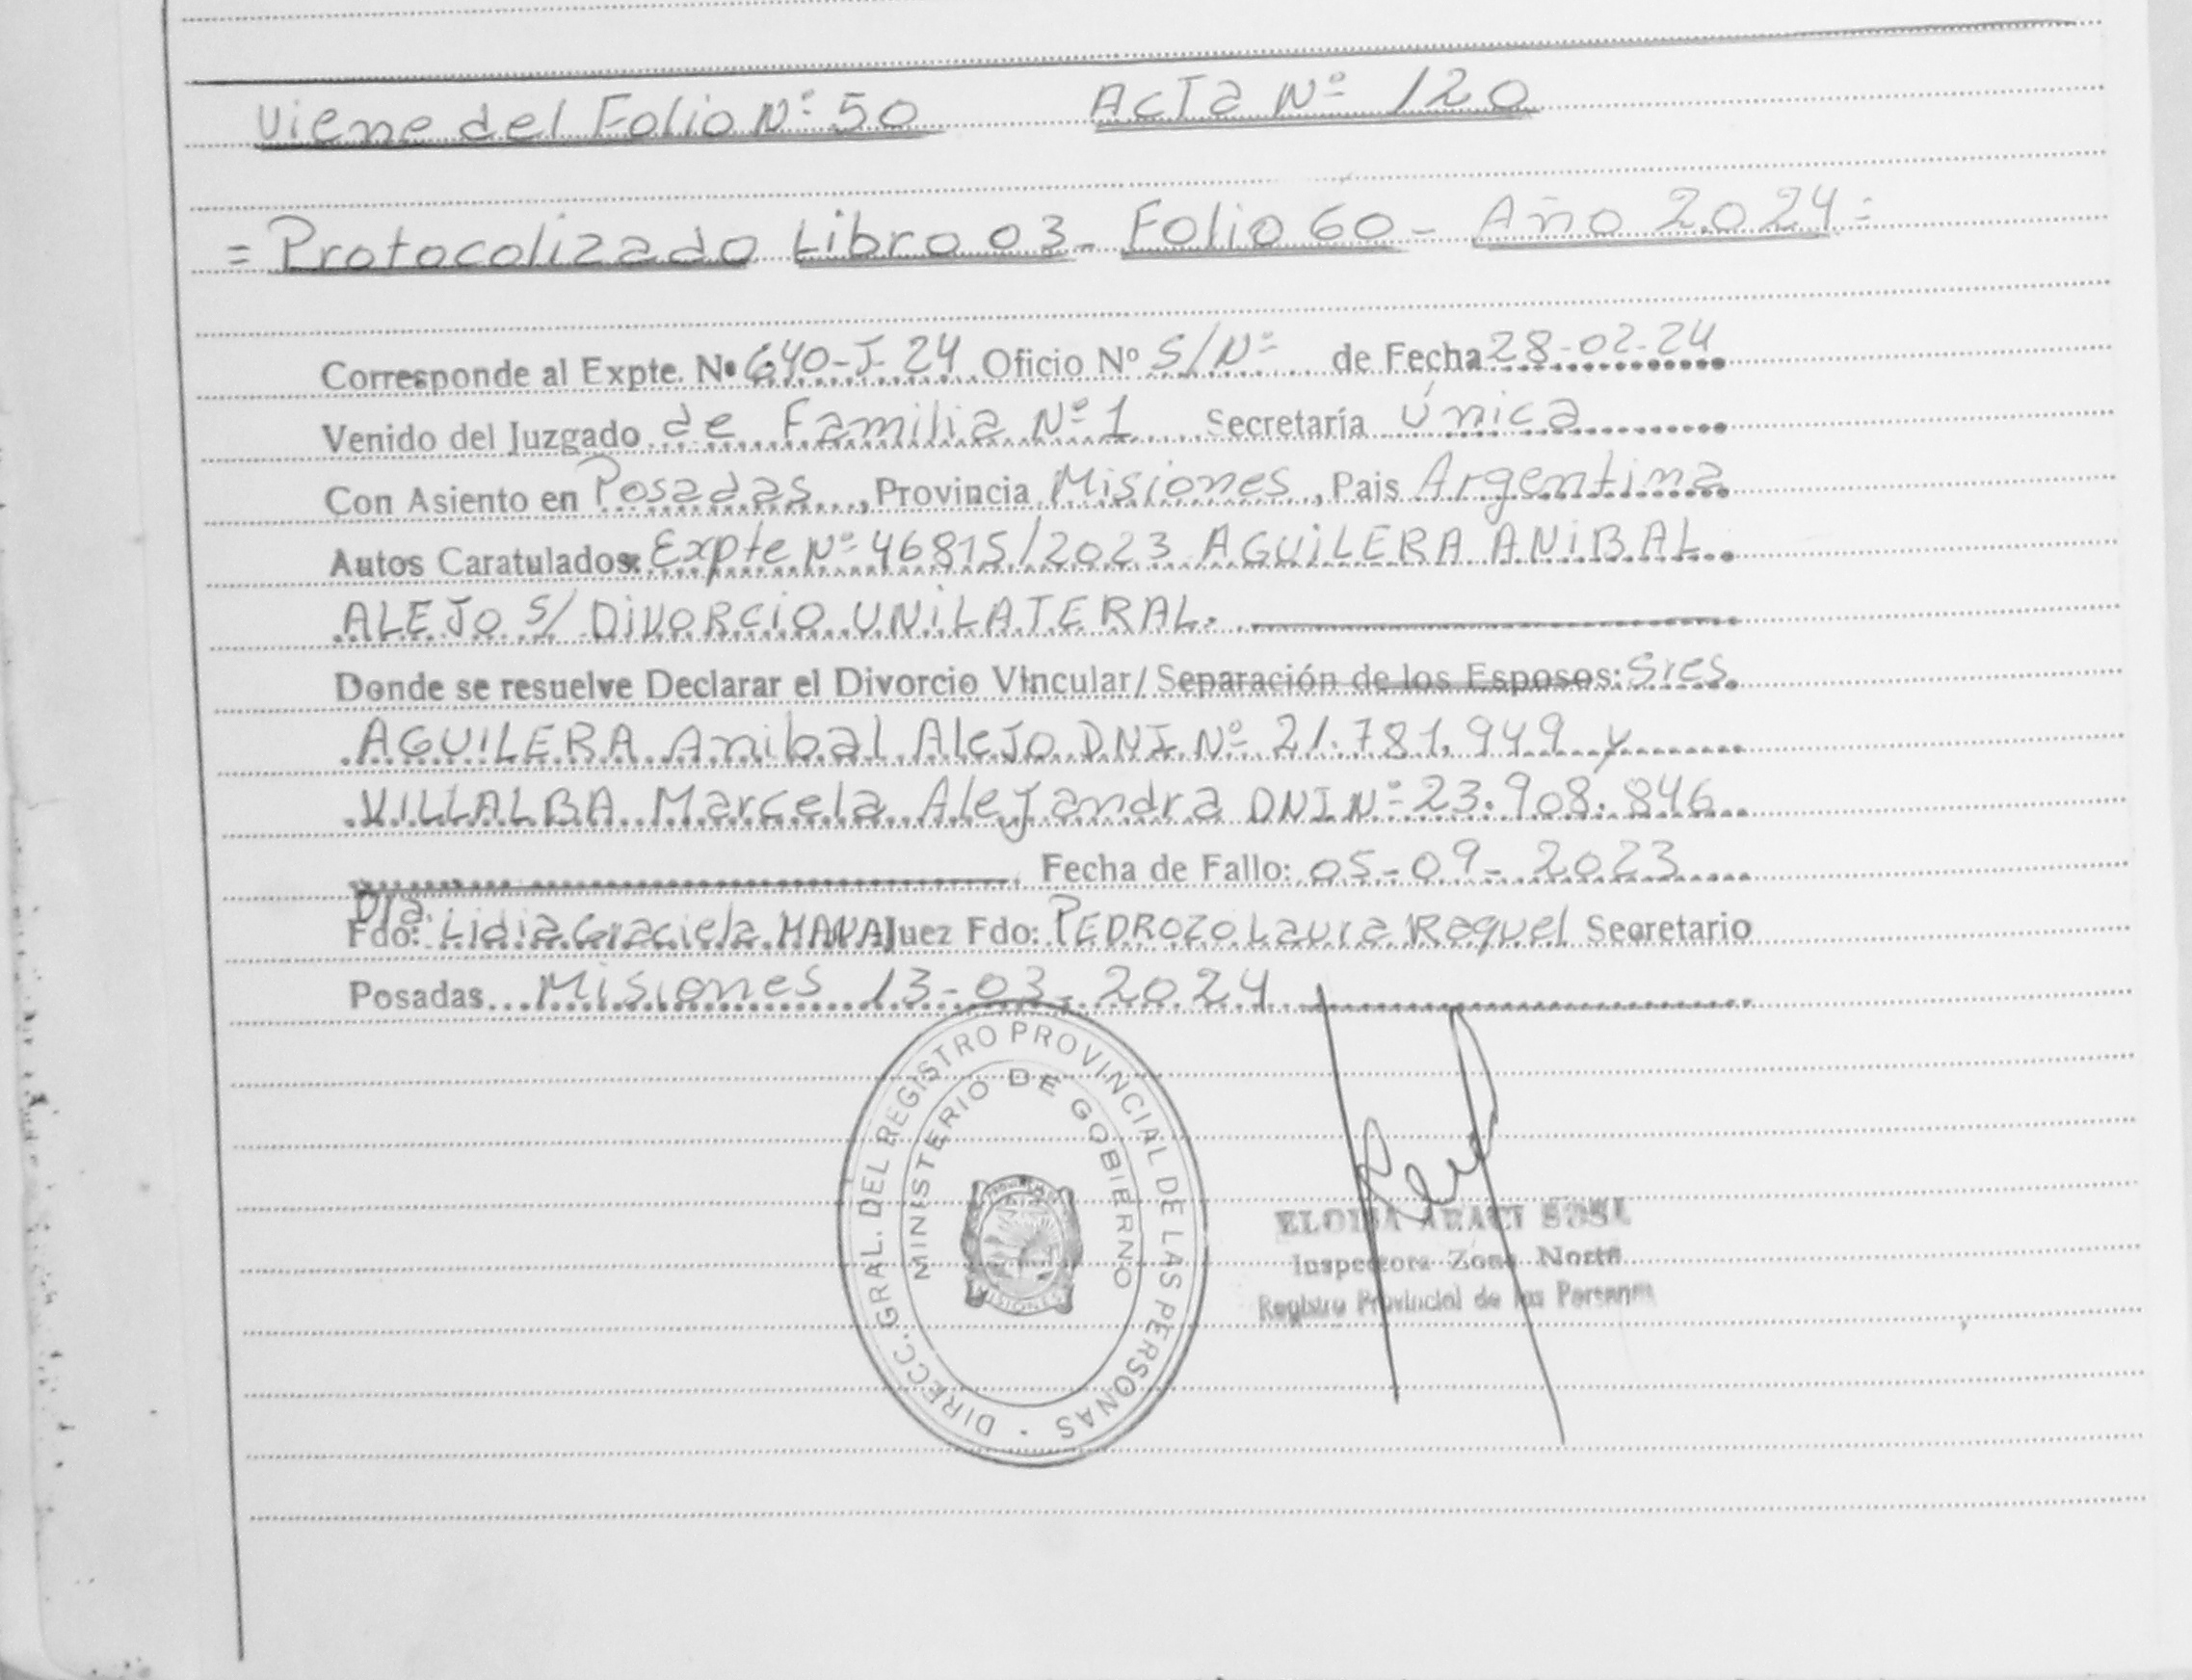 Viene del Folio Nº 50 Acta Nº 120
= Protocolizado Libro 03 - Folio 60 - Año 2.024 =
Corresponde al Expte. Nº 640-J-24 Oficio Nº S/Nº de Fecha 28-02-24
Venido del Juzgado de Familia Nº 1 Secretaría Única
Con Asiento en Posadas, Provincia Misiones, Pais Argentina
Autos Caratulados: Expte Nº 46815/2023 AGUILERA ANIBAL
ALEJO S/ DIVORCIO UNILATERAL.
Donde se resuelve Declarar el Divorcio Vincular/Separación de los Esposos: Sres.
AGUILERA Anibal Alejo DNI Nº 21.781.949 y
VILLALBA Marcela Alejandra DNI Nº 23.908.846
Fecha de Fallo: 05-09-2023
Dra.
Fdo: Lidia Graciela Juez Fdo: PEDROZO Laura Raquel Secretario
Posadas Misiones 13-03-2024
DIRECC. GRAL. DEL REGISTRO PROVINCIAL DE LAS PERSONAS
MINISTERIO DE GOBIERNO
MISIONES
ELOISA ARACI SOSA
Inspectora Zona Norte
Registro Provincial de las Personas